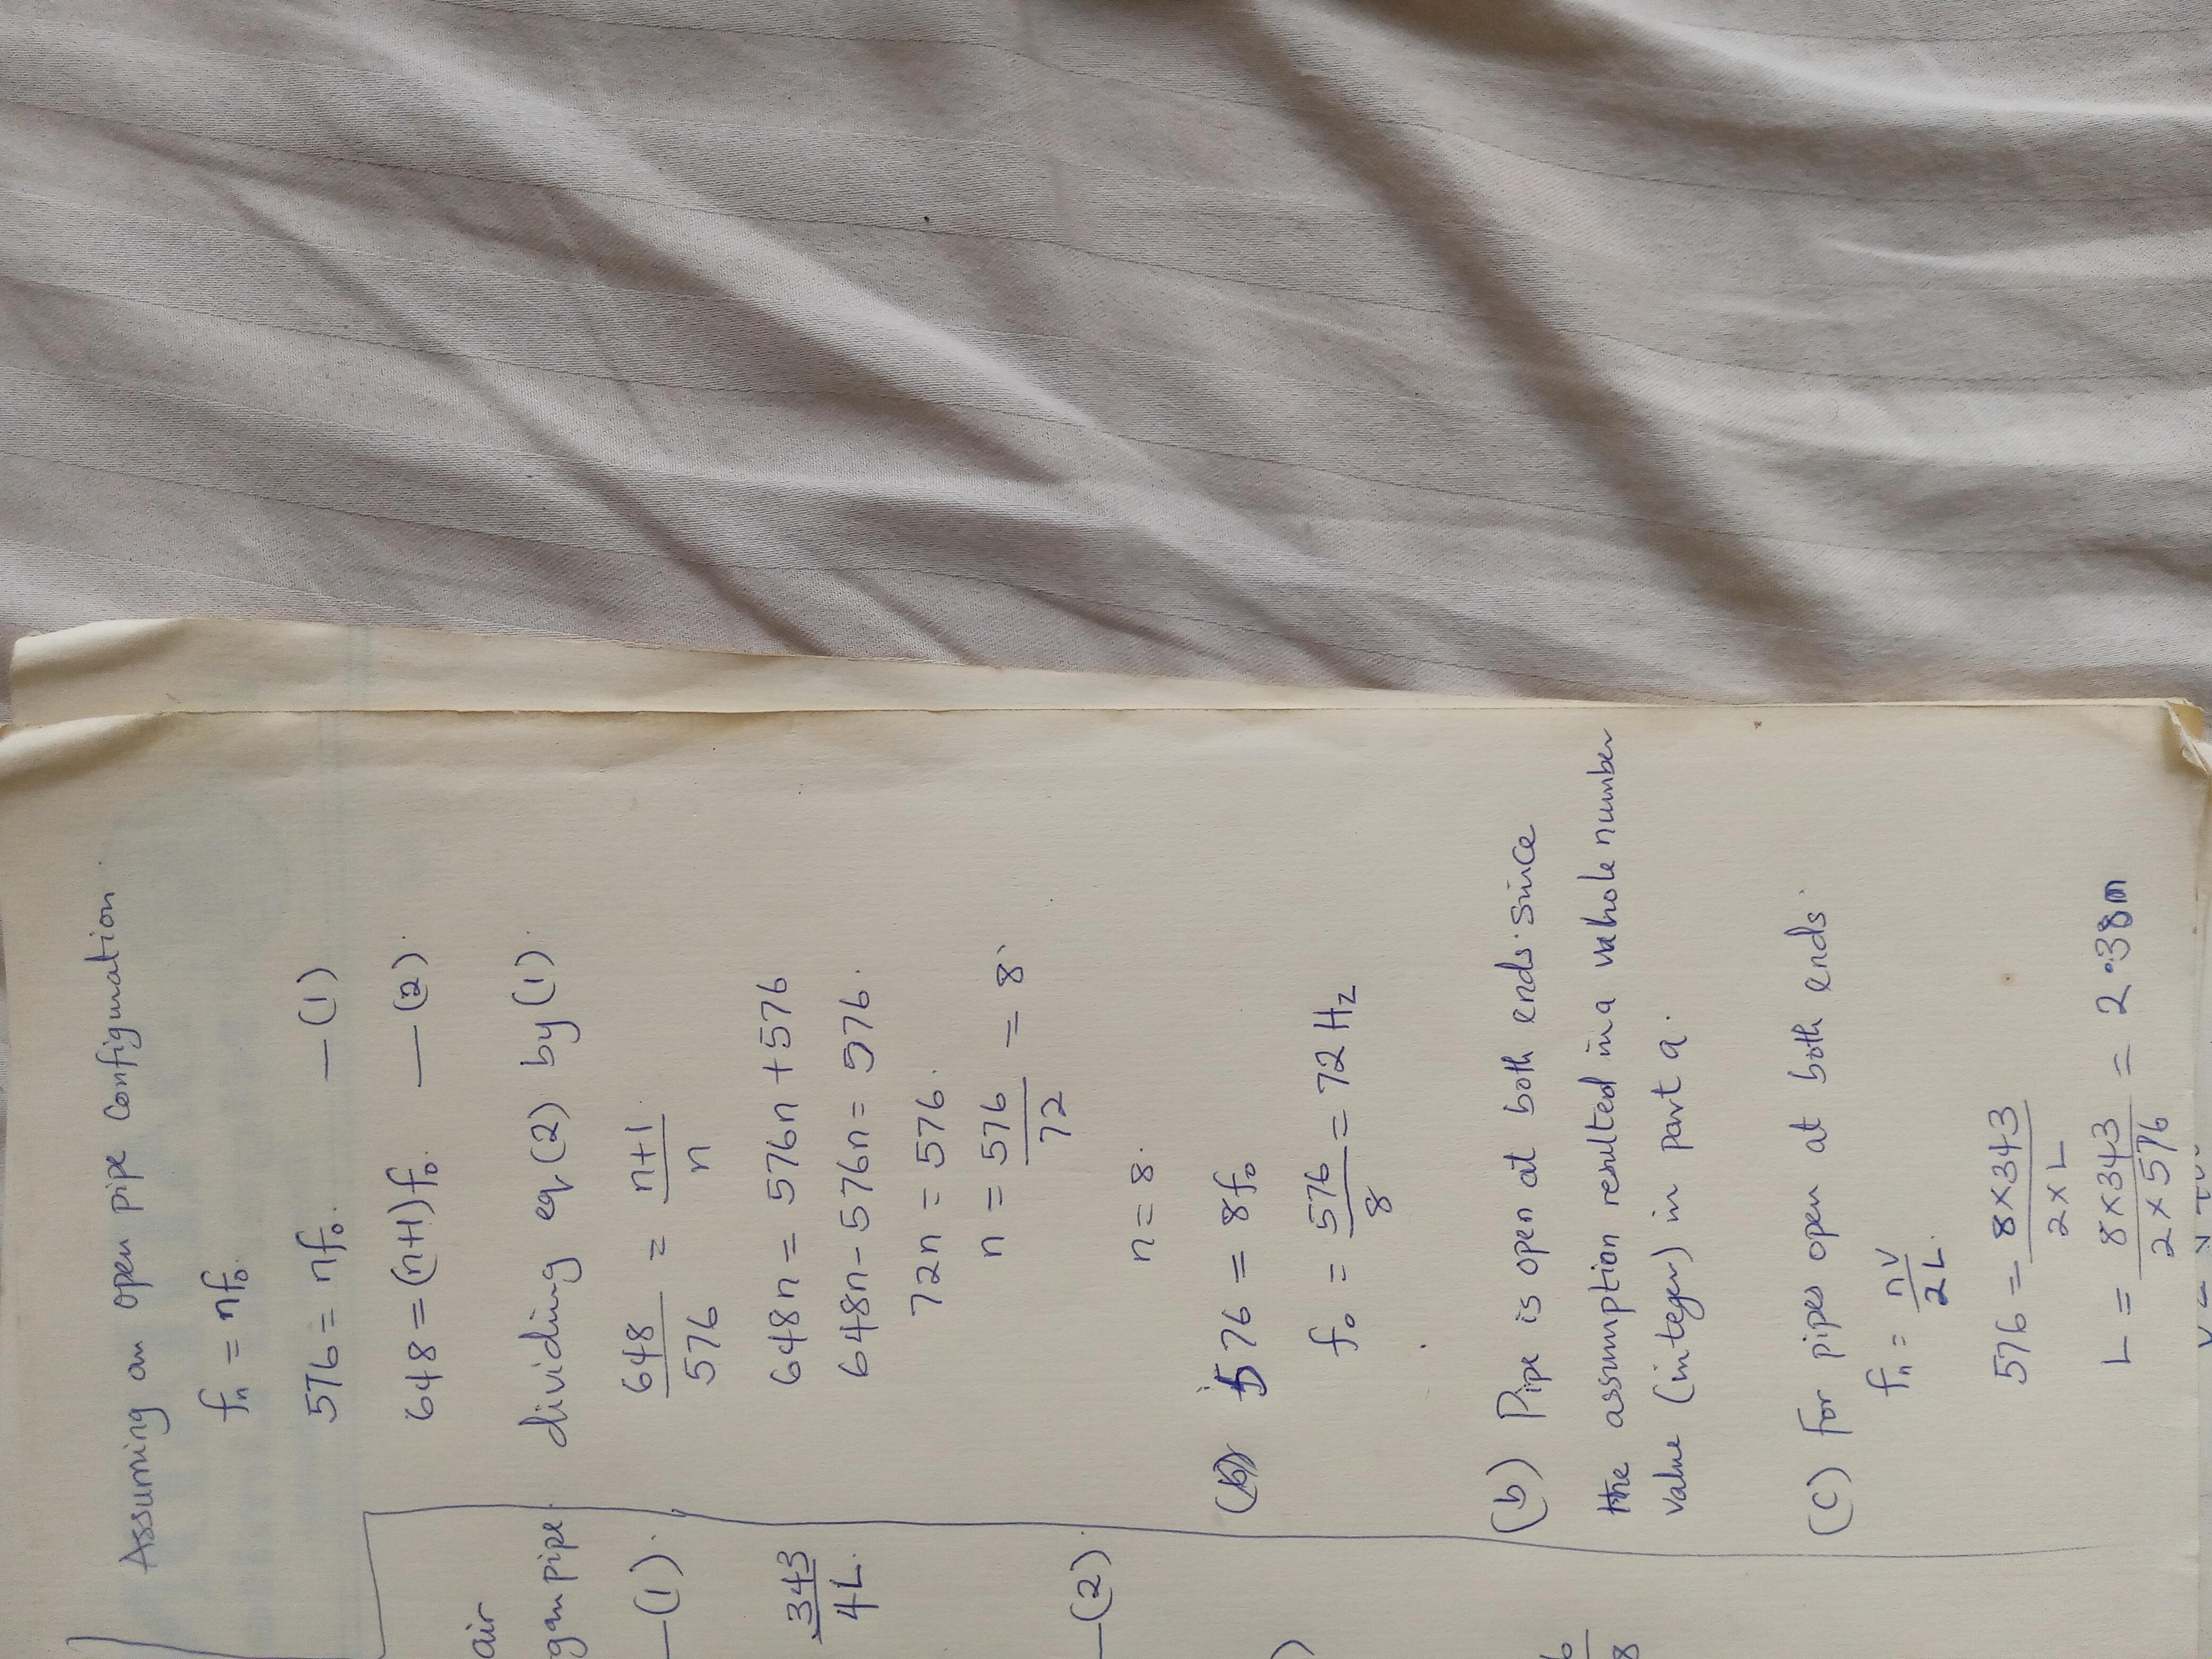 Assuming an open pipe configuration
fₙ = nf₀.
576 = nf₀. — (1)
648 = (n+1)f₀. — (2).
dividing eq (2) by (1)
648/576 = (n+1)/n
648n = 576n + 576
648n - 576n = 576.
72n = 576.
n = 576/72 = 8.
n = 8.
576 = 8f₀
f₀ = 576/8 = 72 Hz
(b) Pipe is open at both ends. Since
the assumption resulted in a whole number
value (integer) in part a.
(c) For pipes open at both ends.
fₙ = nv/2L.
576 = 8×343/2×L
L = 8×343/2×576 = 2.38m
air
gan pipe.
— (1).
343/4L.
— (2)
)
8